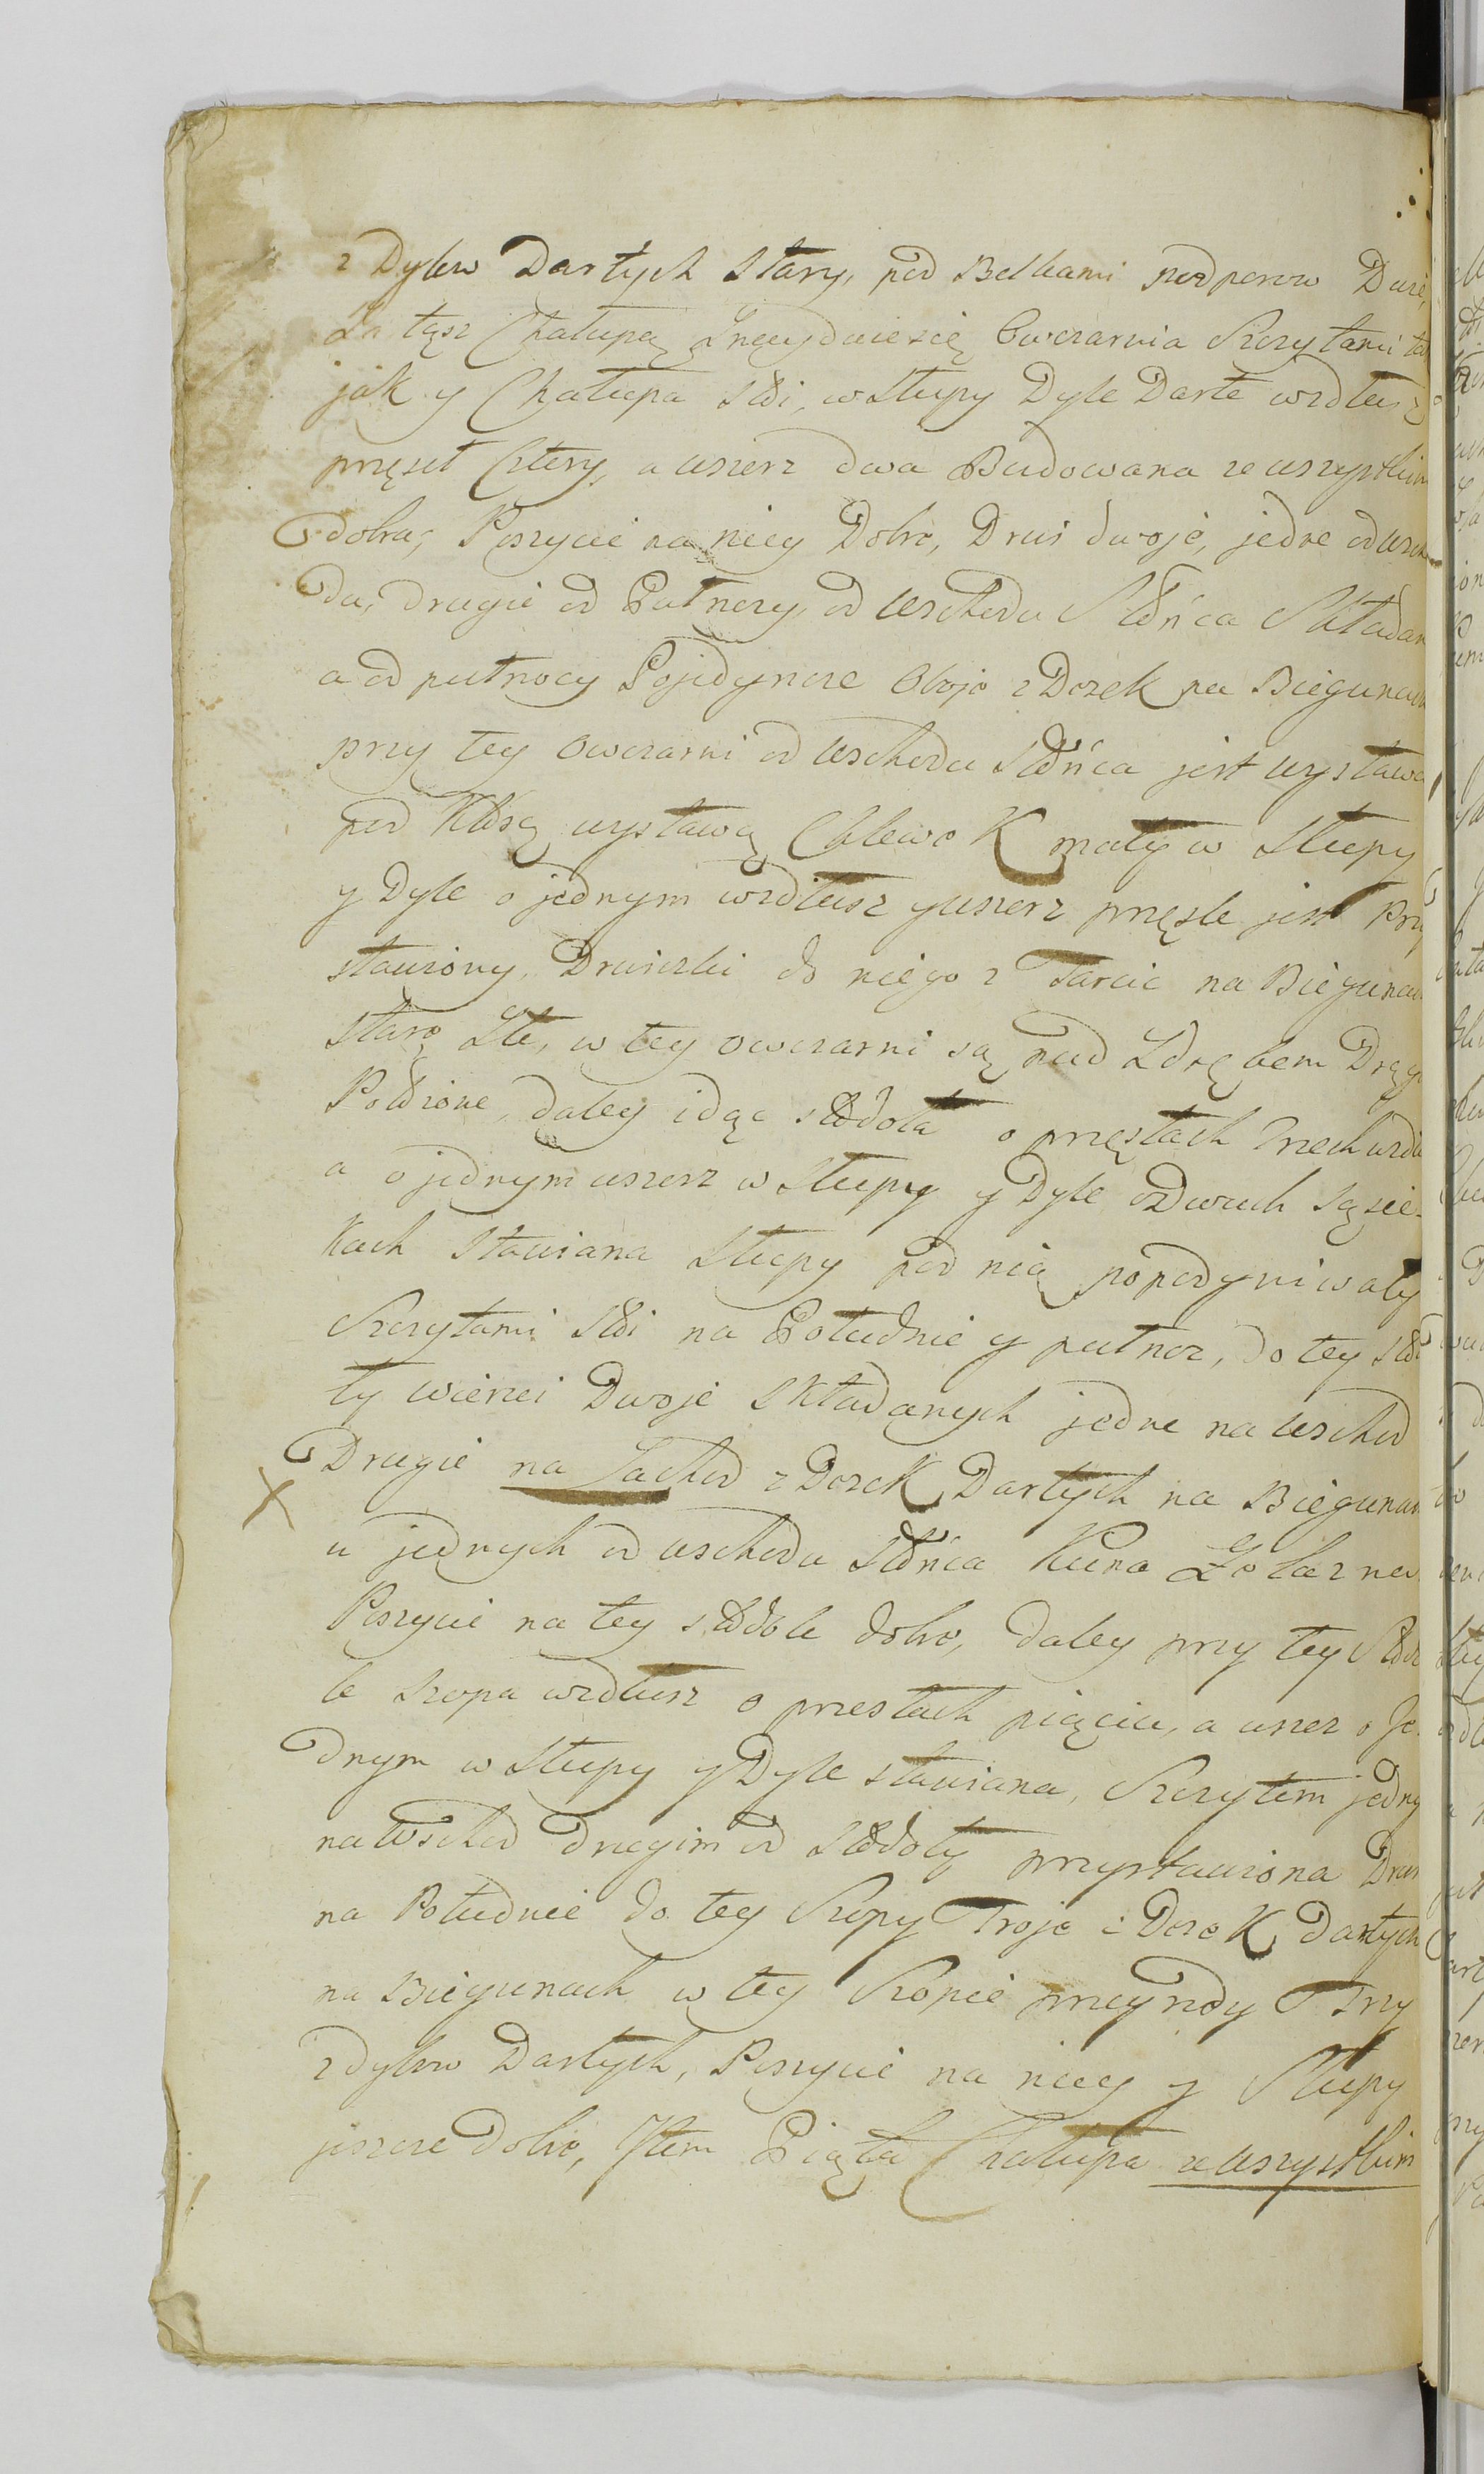 z Dylow Dartych Stary, pod Belkami podporow Dwie,
Za tąsz Chałupą Znayduie się Owczarnia Szczytami ta
jak y Chałupa stoi, w Słupy Dyle Darte wzdłusz
pręseł Cztery, a wszerz dwa Budowana ze wszystkim
dobra, Poszycie na niey Dobre, Drzwi dwoje, jedne od wscho
du, drugie od Pułnocy, od wschodu Słońca Składan
a od pułnocy Pojedyncze Oboje z Dozek na Biegunach
przy tey Owczarni od wschodu Słońca jest wystawa
pod Którą wystawą Chlewek mały w Słupy
y Dyle o jednym wzdłusz y wszerz pręśle jest Przy
stawiony, Drzwiczki do niego z Tarcic na Biegunach
stare Złe, w tey owczarni są nad Zdrębem Drągi
Położone, daley idąc stodoła o pręsłach Trzech wzdłu
a o jednym wszerz w Słupy y Dyle o Dwuch Sąsie-
kach Stawiana Słupy pod nią popodgniwały
Szczytami stoi na Południe y pułnoc, do tey sto
ły wierzei Dwoje składanych jedne na wschod
Drugie na Zachod z Dozek Dartych na Biegunach
u jednych od wschodu Słońca Kuna Żelazna
Poszycie na tey stodole dobre, daley przy tey Stodo
le szopa wzdłusz o przesłach piąciu, a wszez o Je-
dnym w Słupy y Dyle stawiana, Szczytem jedny
na Wschod drugim od Stodoły przystawiona Drzwi
na Południe do tey Szopy Troje z Dozek Dartych
na Biegunach w tey Szopie przegrody Trzy
z dylow Dartych, Poszycie na niey y Słupy
jeszcze Dobre, Item Piąta Chałupa ze wszystkim